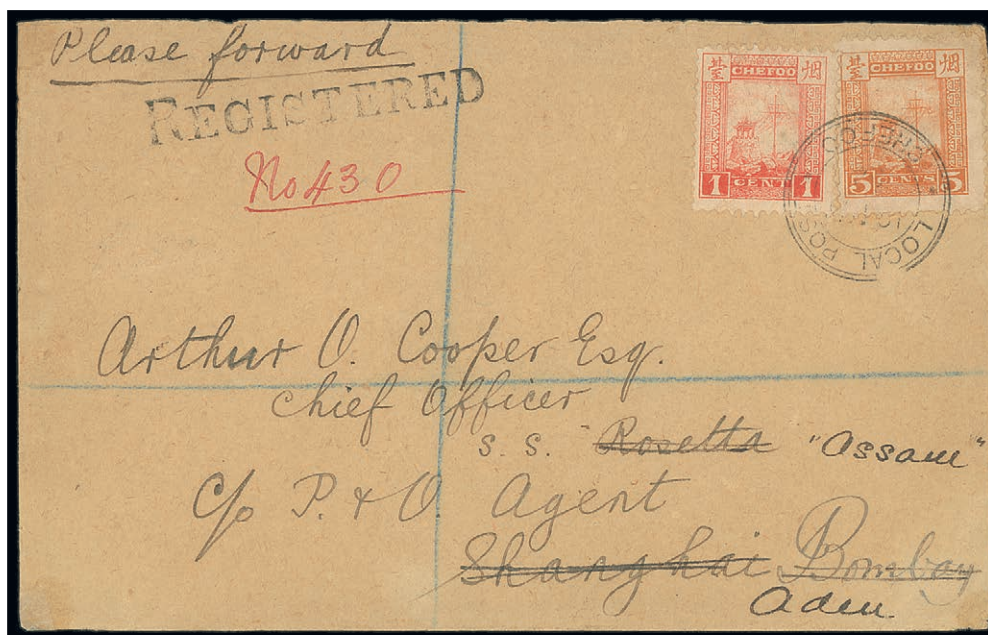 Please forward
REGISTERED
No 430
臺 CHEFOO 烟
1 CENT 1
臺 CHEFOO 烟
5 CENTS 5
CHEFOO
LOCAL POS
Arthur O. Cooper Esq.
Chief Officer
S. S. "Rosetta "Assam"
c/o P. & O. Agent
Shanghai Bombay
Aden